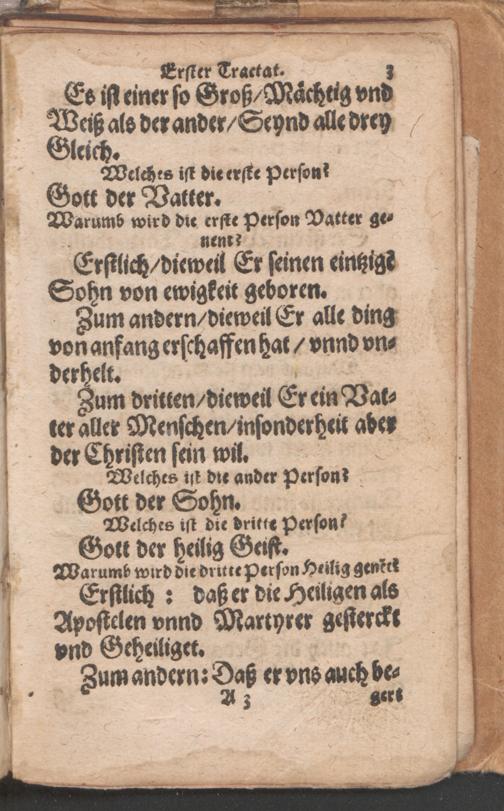 Erster Tractat. 3
Es ist einer so Groß/Mächtig vnd
Weiß als der ander/Seynd alle drey
Gleich.
Welches ist die erste Person?
Gott der Vatter.
Warumb wird die erste Person Vatter ge-
nent?
Erstlich/dieweil Er seinen eintzigē
Sohn von ewigkeit geboren.
Zum andern/dieweil Er alle ding
von anfang erschaffen hat / vnnd vn-
derhelt.
Zum dritten/dieweil Er ein Vat-
ter aller Menschen/insonderheit aber
der Christen sein wil.
Welches ist die ander Person?
Gott der Sohn.
Welches ist die dritte Person?
Gott der heilig Geist.
Warumb wird die dritte Person Heilig genēt?
Erstlich : daß er die Heiligen als
Apostelen vnnd Martyrer gesterckt
vnd Geheiliget.
Zum andern: Daß er vns auch be-
A 3 gert